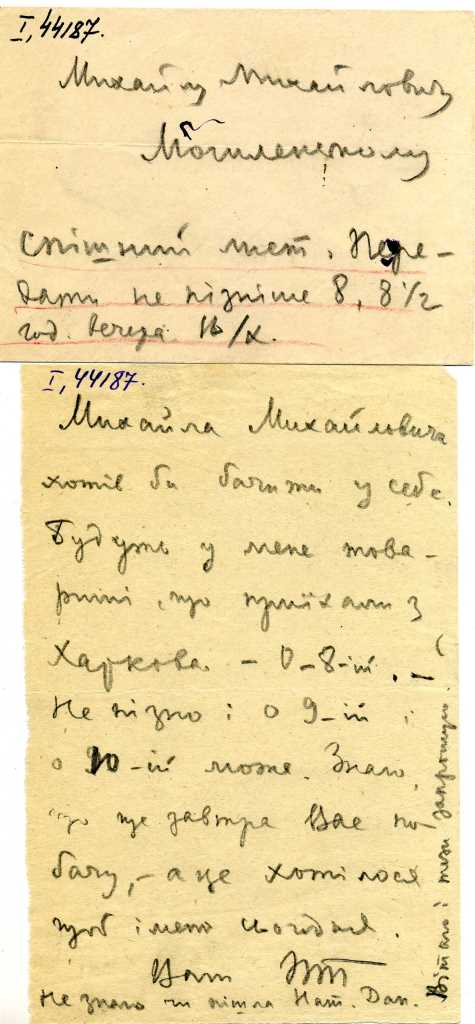 I, 44187.
Михайлу Михайловичу
Могилянському
Спішний лист. Пере-
дати не пізніше 8, 8 1/2
год. вечера /X.
I, 44187.
Михайла Михайловича
хотів би бачити у себе.
Будуть у мене това-
риші, що приїхали з
Харкова – О-8-ій. –
Не пізно і о 9-ій і
о 10-ій може. Знаю,
що ще завтра Вас по-
бачу, – а це хотілося
щоб імено сьогодня.
Ваш
Не знаю чи пішла Нат. Дан.
Вітаю і тежи запрошую.